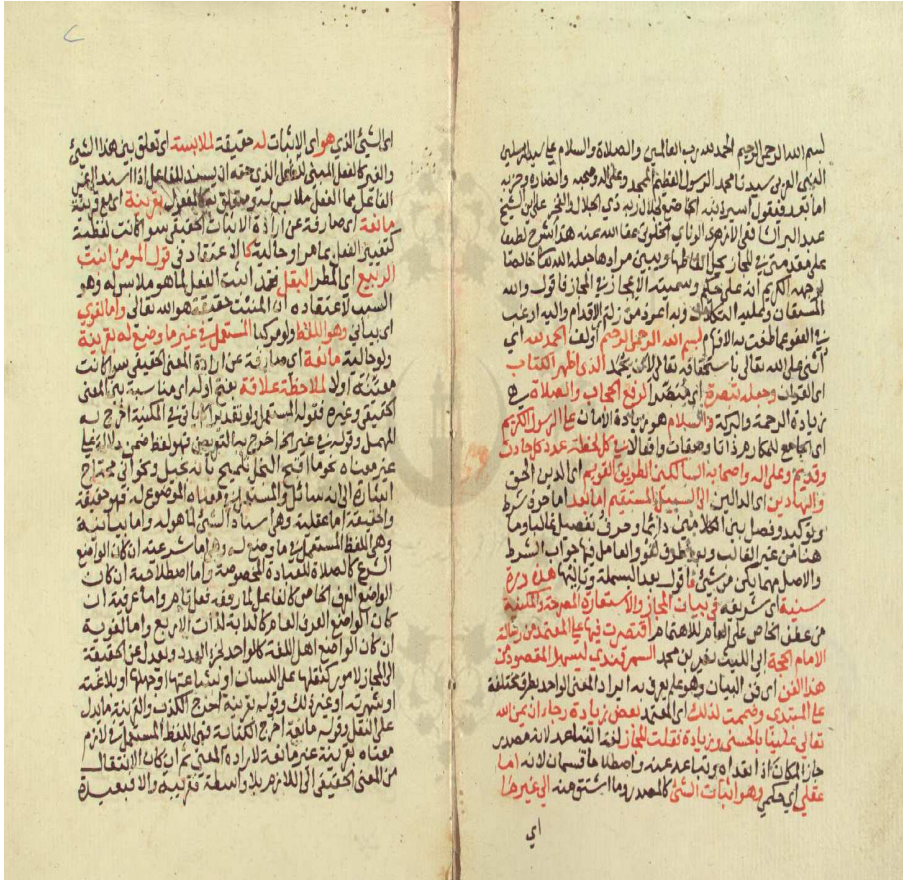 بسم الله الرحمن الرحيم الحمد لله رب العالمين والصلاة والسلام على سيد المرسلين
النبي العربي سيدنا محمد الرسول الفخم الممجد وعلى اله وصحبه وانصاره وحزبه
اما بعد فيقول اسير ذنبه الخاضع لجلال ربه ذي الجلال والفخر على بن الشيخ
عبد البر الونائي الخلوتي عفا الله عنه هذا شرح لطيف
على مقدمتي في المجاز يحل الفاظها ويبين مرادها جعله الله خالصا
لوجهه الكريم انه على حليم وسميته الايجاز في المجاز فاقول والله
المستعان وعليه التكلان وبه اعوذ من زلة الاقدام واليه ارغب
في العفو عما طغت به الاقلام بسم الله الرحمن الرحيم اؤلف الحمد لله اي
اثنى على الله تعالى باستحقاقه تعالى لكل الذي اظهر الكتاب
اي القران وجعله تبصرة اي مبصرا لرفع الحجاب والصلاة هي
زيادة الرحمة والبركة والسلام هو زيادة الامان على الرسول الكريم
اي الجامع للمكارم ذاتا وصفات وافعالا في كل لحظة عدد كل حادث
وقديم وعلى اله واصحابه السالكين الطريق القويم اي الدين الحق
والهادين اي الدالين الى السبيل المستقيم اما بعد اما حرف شرط
وتوكيد وفصل بين الكلامين دائما وحرف تفصيل غالبا وما
هنا من غير الغالب وبعد ظرف لغو والعامل فيها جواب الشرط
والاصل مهما يكن من شئ فاقول بعد البسملة وتاليها هذه درة
سنية اي شريفة في بيان المجاز والاستعارة المصرحة والمكنية
من عطف الخاص على العام للاهتمام اقتصرت فيها على المعتمد من رسالة
الامام الحجة ابي الليث نصر بن محمد السمرقندي ليسهل المقصود من
هذا الفن اي فن البيان وهو علم يعرف به ايراد المعنى الواحد بطرق مختلفة
على المبتدي وضممت لذلك اي المعتمد بعض زيادة رجاء ان يمن الله
تعالى علينا بالحسنى وزيادة فقلت المجاز لغة التباعد لانه مصدر
جاز المكان اذا تعداه وتباعد عنه واصطلاحا قسمان لانه اما
عقلي اي حكمي وهو اثبات الشئ كالمصدر وما اشتق منه الى غير ما
اي
اي الشئ الذي هو اي الاثبات له حقيقة لملابسة اي تعلق بين هذا الشئ
والغير كالفعل المبني للفاعل الذي حقه ان يسند للفاعل اذا اسند الى غير
الفاعل مما الفعل ملابس له ومتعلق به كالمفعول بقرينة اي مع قرينة
مانعة اي صارفة عن ارادة الاثبات الحقيقي سوا كانت لفظية
كتفسير الفعل بما هو او حالية كالاعتقاد في قول المومن انبت
الربيع اي المطر البقل فقد اثبت الفعل لما هو ملابس له وهو
السبب لاعتقاده ان المنبت حقيقة هو الله تعالى واما لغوي
اي بياني وهو اللفظ ولو مركبا المستعمل في غير ما وضع له بقرينة
ولو حالية مانعة اي صارفة عن ارادة المعنى الحقيقي سوا كانت
معينة اولا لملاحظة علاقة بفتح اوله اي مناسبة بين المعنى
الحقيقي وغيره فقوله المستعمل ولو تقديرا كما في المكنية اخرج به
المهمل وقوله في غير الخ اخرج به التعريض فهو لفظ ضمن دلالة على
غير معناه نحو ما اقبح البخل تلميح بانه بخيل ونحو اني محتاج
اشارة الى انه سائل والمستعمل في معناه الموضوع له فهو حقيقة
والحقيقة اما عقلية وهي اسناد الشئ لما هو له واما بيانية
وهي اللفظ المستعمل في ما وضع له وهي اما شرعية ان كان الواضع
الشرع كالصلاة للعبادة المخصوصة واما اصطلاحية ان كان
الواضع العرف الخاص كالفاعل لما رفعه فعل تام واما عرفية ان
كان الواضع العرف العام كالدابة لذات الاربع واما لغوية
ان كان الواضع اهل اللغة كالواحد لجزء العدد ويعدل عن الحقيقة
الى المجاز لامور كثقلها على اللسان او بشاعتها او جهلها او بلاغته
او شهرته او غير ذلك وقوله بقرينة اخرج الكذب والقرينة ما دل
على النقل وقوله مانعة اخرج الكناية فهي اللفظ المستعمل في لازم
معناه بقرينة غير مانعة لارادة المعنى ثم ان كان الانتقال
من المعنى الحقيقي الى اللازم بلا واسطة فقريبة والا فبعيدة